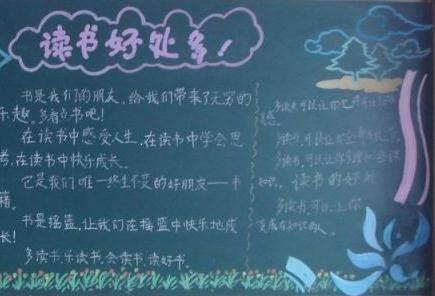 读书好处多！
书是我们的朋友，给我们带来了无穷的
乐趣，多看点书吧！
在读书中感受人生，在读书中学会思
考，在读书中快乐成长。
它是我们唯一终生不灭的好朋友——书
籍。
书是摇篮，让我们在摇篮中快乐地成
长！
多读书，乐读书，会读书，读好书。
多读书，可以让你
多读书，可以让你
多读书，可以让你
知识。读书的好处
多读书，可以让你
变成有知识的人。